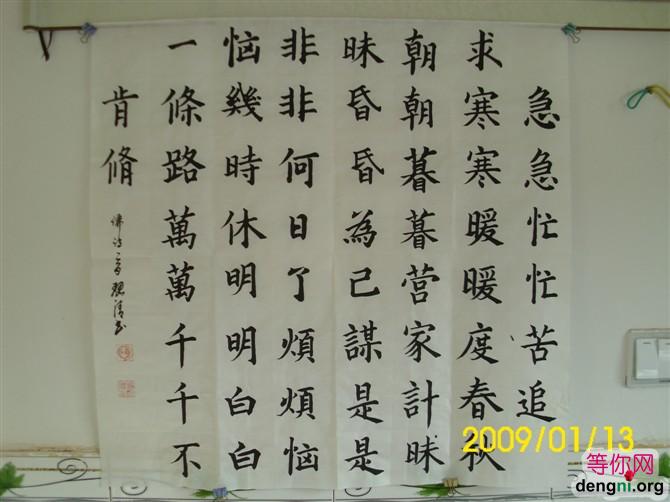 急急忙忙苦追
求寒寒暖暖度春秋
朝朝暮暮营家計昧
昧昏昏為己謀是是
非非何日了煩煩恼
恼幾時休明明白白
一條路萬萬千千不
肯脩
2009/01/13
等你网
dengni.org